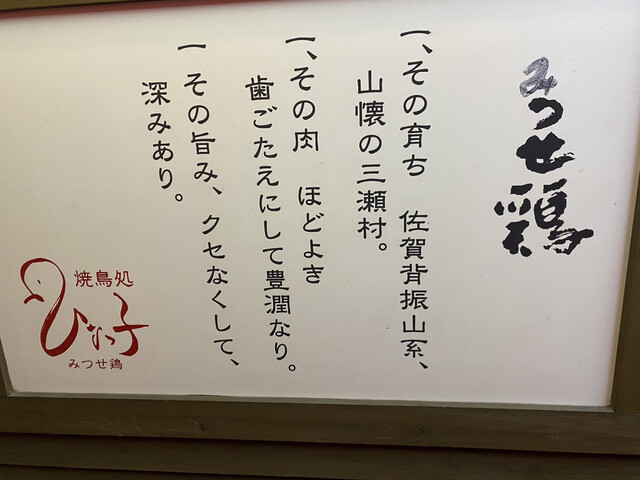 みつせ鶏
一、その育ち 佐賀背振山系、
山懐の三瀬村。
一、その肉 ほどよき
歯ごたえにして豊潤なり。
一 その旨み、クセなくして、
深みあり。
焼鳥処
ひなっ子
みつせ鶏